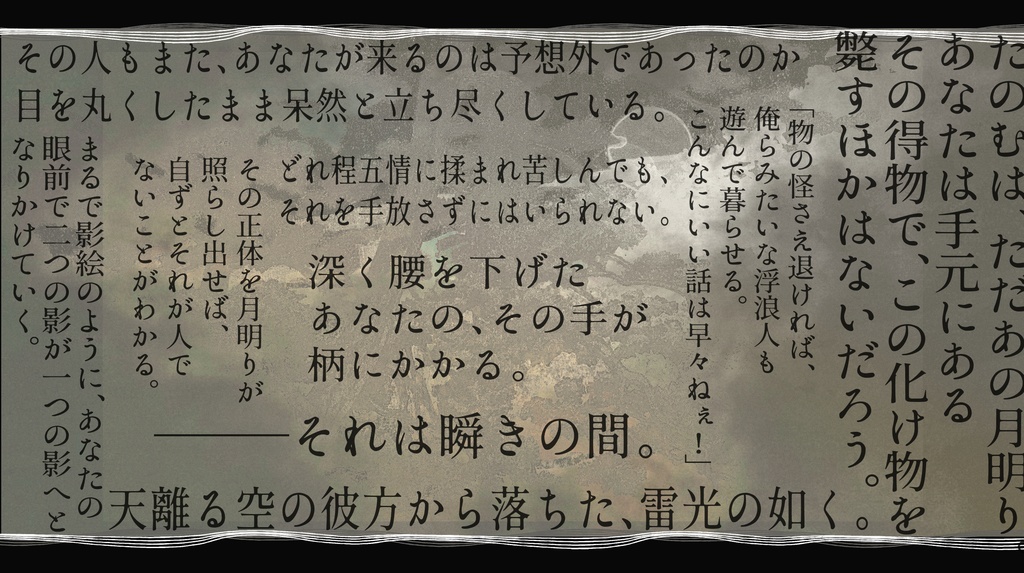 たのむは、ただあの月明り。
あなたは手元にある
その得物で、この化け物を
斃すほかはないだろう。
「物の怪さえ退ければ、
俺らみたいな浮浪人も
遊んで暮らせる。
こんなにいい話は早々ねぇ！」
その人もまた、あなたが来るのは予想外であったのか
目を丸くしたまま呆然と立ち尽くしている。
どれ程五情に揉まれ苦しんでも、
それを手放さずにはいられない。
その正体を月明りが
照らし出せば、
自ずとそれが人で
ないことがわかる。
まるで影絵のように、あなたの
眼前で二つの影が一つの影へと
なりかけていく。
深く腰を下げた
あなたの、その手が
柄にかかる。
――それは瞬きの間。
天離る空の彼方から落ちた、雷光の如く。